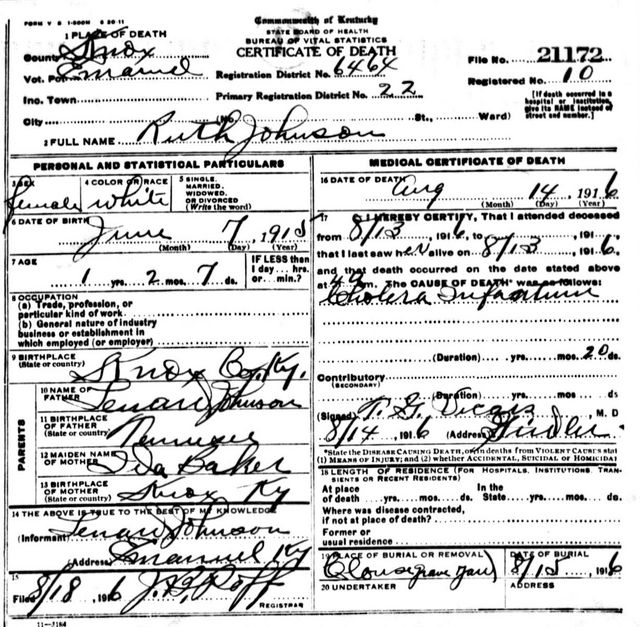 FORM V S 1-500M 6 20-11
Commonwealth of Kentucky
STATE BOARD OF HEALTH
BUREAU OF VITAL STATISTICS
CERTIFICATE OF DEATH
1 PLACE OF DEATH
County Knox
Vot. Pct. Emanuel
Inc. Town
City
Registration District No. 6464
Primary Registration District No. 22
(No. St., Ward)
File No. 21172
Registered No. 10
[If death occurred in a hospital or institution, give its NAME instead of street and number.]
2 FULL NAME Ruth Johnson
PERSONAL AND STATISTICAL PARTICULARS
3 SEX
female
4 COLOR OR RACE
white
5 SINGLE, MARRIED, WIDOWED, OR DIVORCED
(Write the word)
6 DATE OF BIRTH
June 7, 1915
(Month) (Day) (Year)
7 AGE
1 yrs. 2 mos. 7 ds.
IF LESS than 1 day ... hrs. or min.?
8 OCCUPATION
(a) Trade, profession, or particular kind of work
(b) General nature of industry business or establishment in which employed (or employer)
9 BIRTHPLACE
(State or country) Knox Co. Ky.
PARENTS
10 NAME OF FATHER Johnson
11 BIRTHPLACE OF FATHER
(State or country)
12 MAIDEN NAME OF MOTHER Ida Baker
13 BIRTHPLACE OF MOTHER
(State or country) Knox Ky
14 THE ABOVE IS TRUE TO THE BEST OF MY KNOWLEDGE
(Informant) Johnson
(Address) Emanuel Ky
15
Filed 8/18, 1916 REGISTRAR
11-3184
MEDICAL CERTIFICATE OF DEATH
16 DATE OF DEATH
Aug 14, 1916
(Month) (Day) (Year)
17 I HEREBY CERTIFY, That I attended deceased
from 8/13 1916, to , 191 ,
that I last saw her alive on 8/13 1916,
and that death occurred on the date stated above
at m. The CAUSE OF DEATH* was as follows:
Cholera Infantum
(Duration) yrs. mos. 20 ds.
Contributory
(SECONDARY)
(Duration) yrs. mos. ds.
(Signed) M. D.
8/14, 1916 (Address)
*State the DISEASE CAUSING DEATH, or in deaths from VIOLENT CAUSES state (1) MEANS OF INJURY; and (2) whether ACCIDENTAL, SUICIDAL or HOMICIDAL
18 LENGTH OF RESIDENCE (FOR HOSPITALS, INSTITUTIONS, TRANSIENTS OR RECENT RESIDENTS)
At place of death yrs. mos. ds. In the State yrs. mos. ds.
Where was disease contracted, if not at place of death?
Former or usual residence
19 PLACE OF BURIAL OR REMOVAL
grave yard
DATE OF BURIAL
8/15, 1916
20 UNDERTAKER
ADDRESS